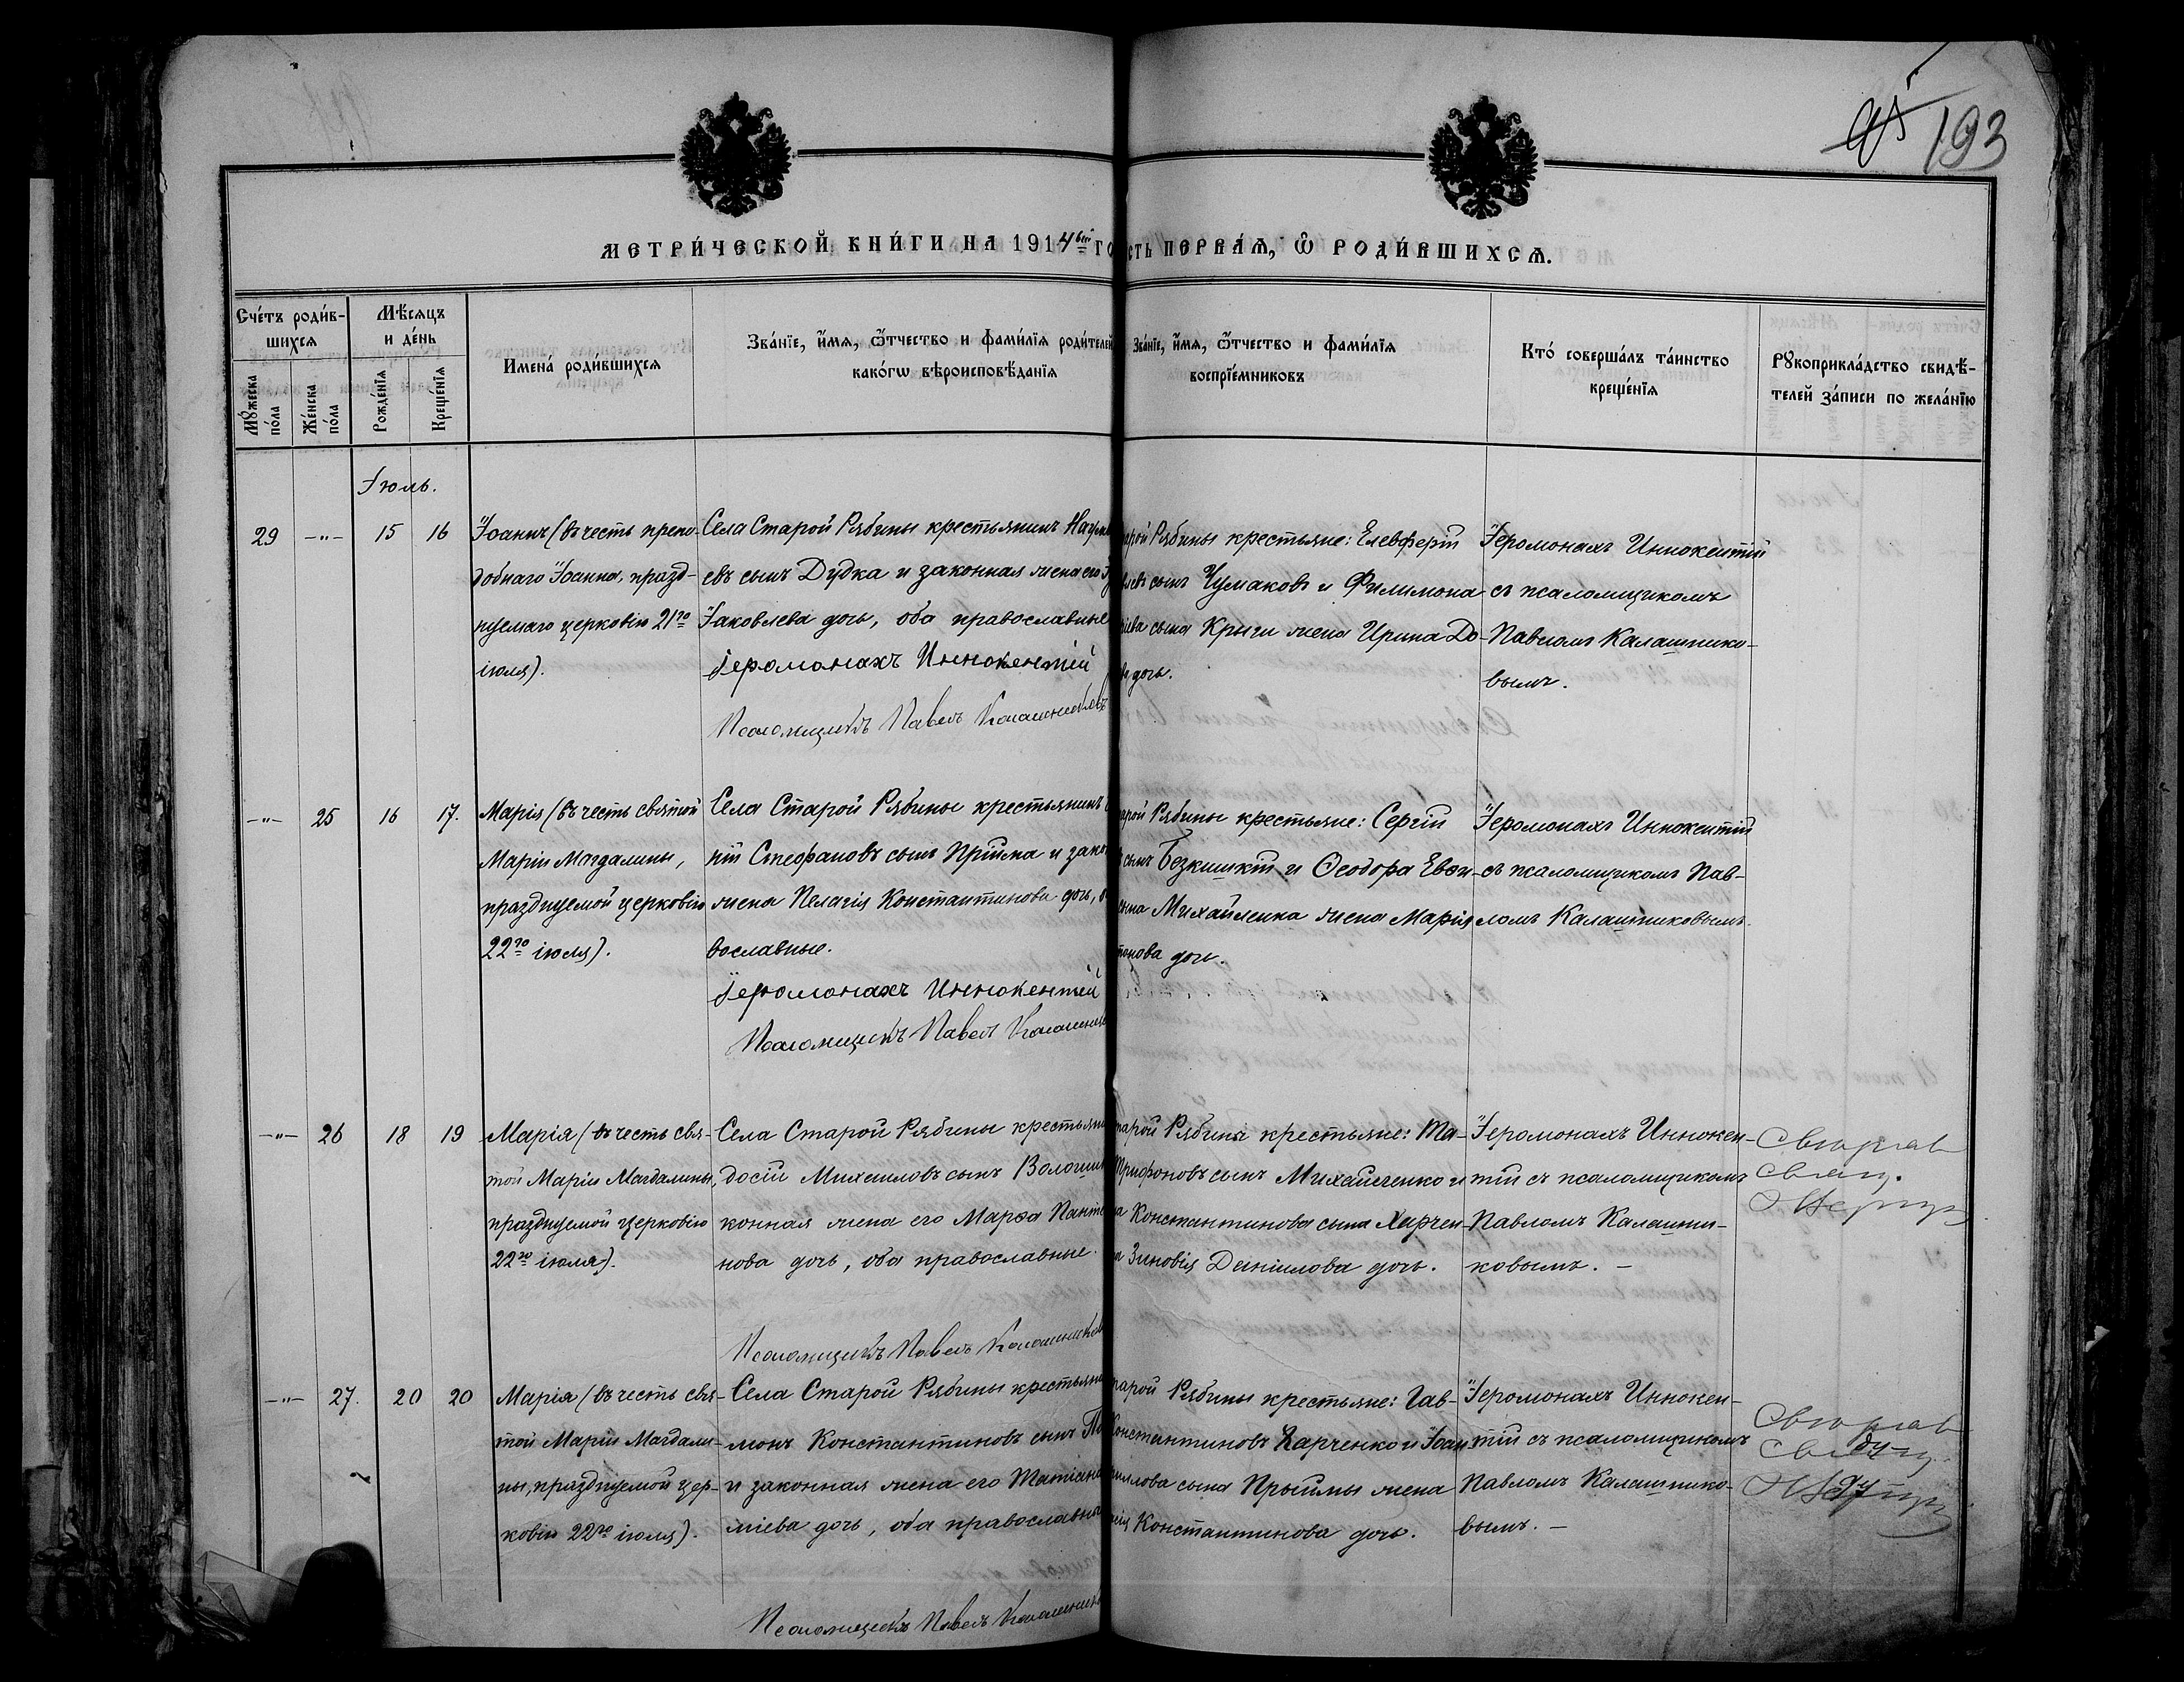 193
МЕТРИ́ЧЕСКОЙ КНИ́ГИ НА 1914 ГО
СТЬ ПЕРВАѦ, Ѡ РОДИ́ВШИХСѦ.
Сче́тъ роди́в-
шихсѧ
Мѣ́сѧцъ
и де́нь
Мꙋ́жеска
по́ла
Же́нска
по́ла
Рожде́нїѧ
Креще́нїѧ
Имена́ роди́вшихсѧ
Зва́нїе, и҆́мѧ, ѻ҆́тчество и фами́лїѧ роди́телей
како́гѡ вѣроисповѣ́данїѧ
Зва́нїе, и҆́мѧ, ѻ҆́тчество и фами́лїѧ
воспрїе́мниковъ
Кто́ соверша́лъ та́инство
креще́нїѧ
Рꙋкоприкла́дство свидѣ́-
телей за́писи по жела́нїю
Іюль.
29 -"- 15 16
Іоаннъ (въ честь препо-
добнаго Іоанна, празд-
нуемаго церковію 21го
іюля).
Села Старой Рябины крестьянинъ Наум
евъ сынъ Дудка и законная жена его
Іаковлева дочь, оба православные
Іеромонахъ Иннокентій
Псаломщикъ Павелъ Калашниковъ
арой Рябины крестьяне: Елевферій
влевъ сынъ Чумаковъ и Филимона
ева сына Крыги жена Ирина До-
дочь.
Іеромонахъ Иннокентій
съ псаломщикомъ
Павломъ Калашнико-
вымъ.
-"- 25 16 17.
Марія (въ честь святой
Маріи Магдалины,
празднуемой церковію
22го іюля).
Села Старой Рябины крестьянинъ
ній Стефановъ сынъ Прійма и зако
жена Пелагія Константинова дочь,
вославные.
Іеромонахъ Иннокентій
Псаломщикъ Павелъ Калашник
арой Рябины крестьяне: Сергій
сынъ Безкишкій и Ѳеодора Евѳи-
сына Михайленка жена Марія
онова дочь.
Іеромонахъ Иннокентій
съ псаломщикомъ Пав-
ломъ Калашниковымъ.
-"- 26 18 19
Марія (въ честь свя-
той Маріи Магдалины,
празднуемой церковію
22го іюля).
Села Старой Рябины крестьяни
досій Михаиловъ сынъ Волошин
конная жена его Марѳа Пантел
нова дочь, оба православные.
Псаломщикъ Павелъ Калашников
тарой Рябины крестьяне: Ма-
Трифоновъ сынъ Михайленко и
Константинова сына Харчен-
Зиновія Даніилова дочь.
Іеромонахъ Иннокен-
тій съ псаломщикомъ
Павломъ Калашни-
ковымъ. –
-"- 27. 20 20
Марія (въ честь свя-
той Маріи Магдали-
ны, празднуемой цер-
ковію 22го іюля).
Села Старой Рябины крестьяни
монъ Константиновъ сынъ
и законная жена его Татіана
міева дочь, оба православны
Псаломщикъ Павелъ Калашник
тарой Рябины крестьяне: Гав-
Константиновъ Харченко и Іоан
иллова сына Прыймы жена
Константинова дочь.
Іеромонахъ Иннокен-
тій съ псаломщикомъ
Павломъ Калашнико-
вымъ. –